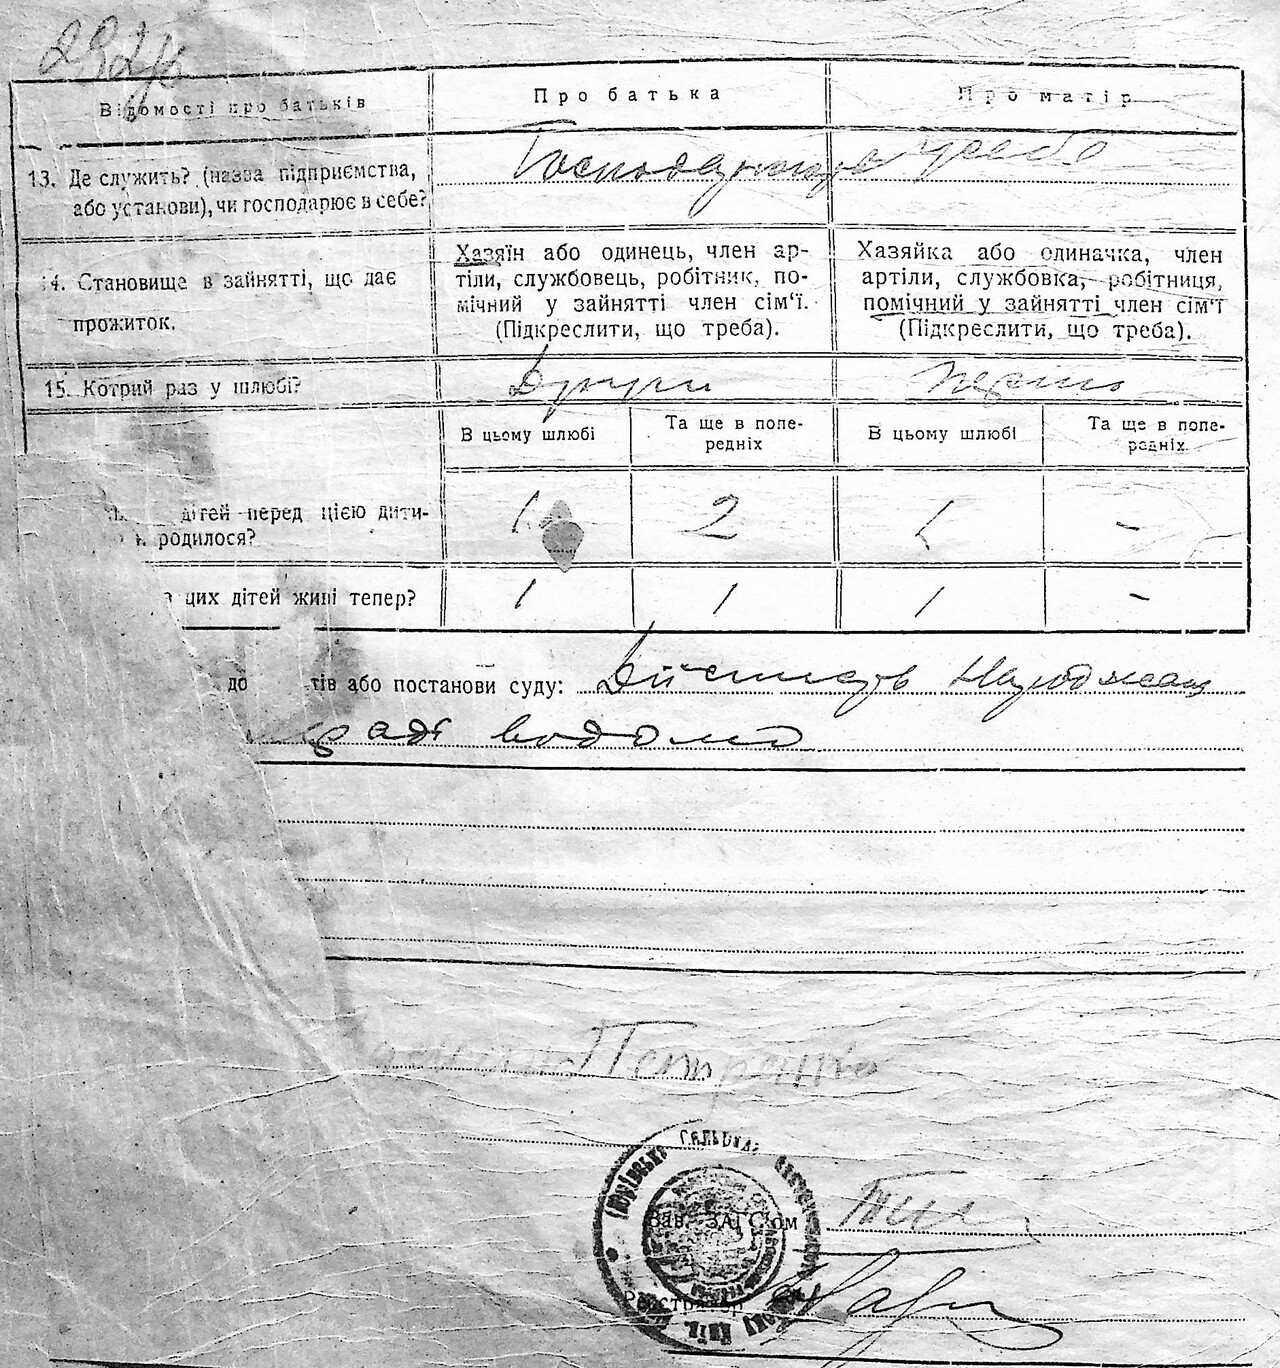 Відомості про батьків
Про батька
Про матір
13. Де служить? (назва підприємства, або установи), чи господарює в себе?
Господарює у себе
14. Становище в зайнятті, що дає прожиток.
Хазяїн або одинець, член ар-
тіли, службовець, робітник, по-
мічний у зайнятті член сім'ї.
(Підкреслити, що треба).
Хазяйка або одиначка, член
артіли, службовка, робітниця,
помічний у зайнятті член сім'ї
(Підкреслити, що треба).
15. Котрий раз у шлюбі?
Други
В цьому шлюбі
Та ще в попе-
редніх
В цьому шлюбі
Та ще в попе-
редніх
дітей перед цією дити-
родилося?
1
2
1
-
цих дітей живі тепер?
1
1
1
-
або постанови суду:
раді водомо
Петренко
Зав. ЗАГС'ом
Реєстратор